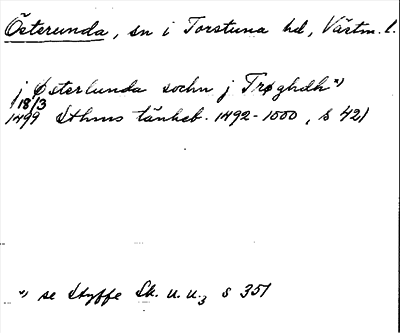 Österunda, sn i Torstuna hd, Västm. l.
j Østerlunda sochn j Trøghdh *)
18/3
1499 Sthms tänkeb. 1492-1500, s 421
*) se Styffe Sk. u. u., s 351